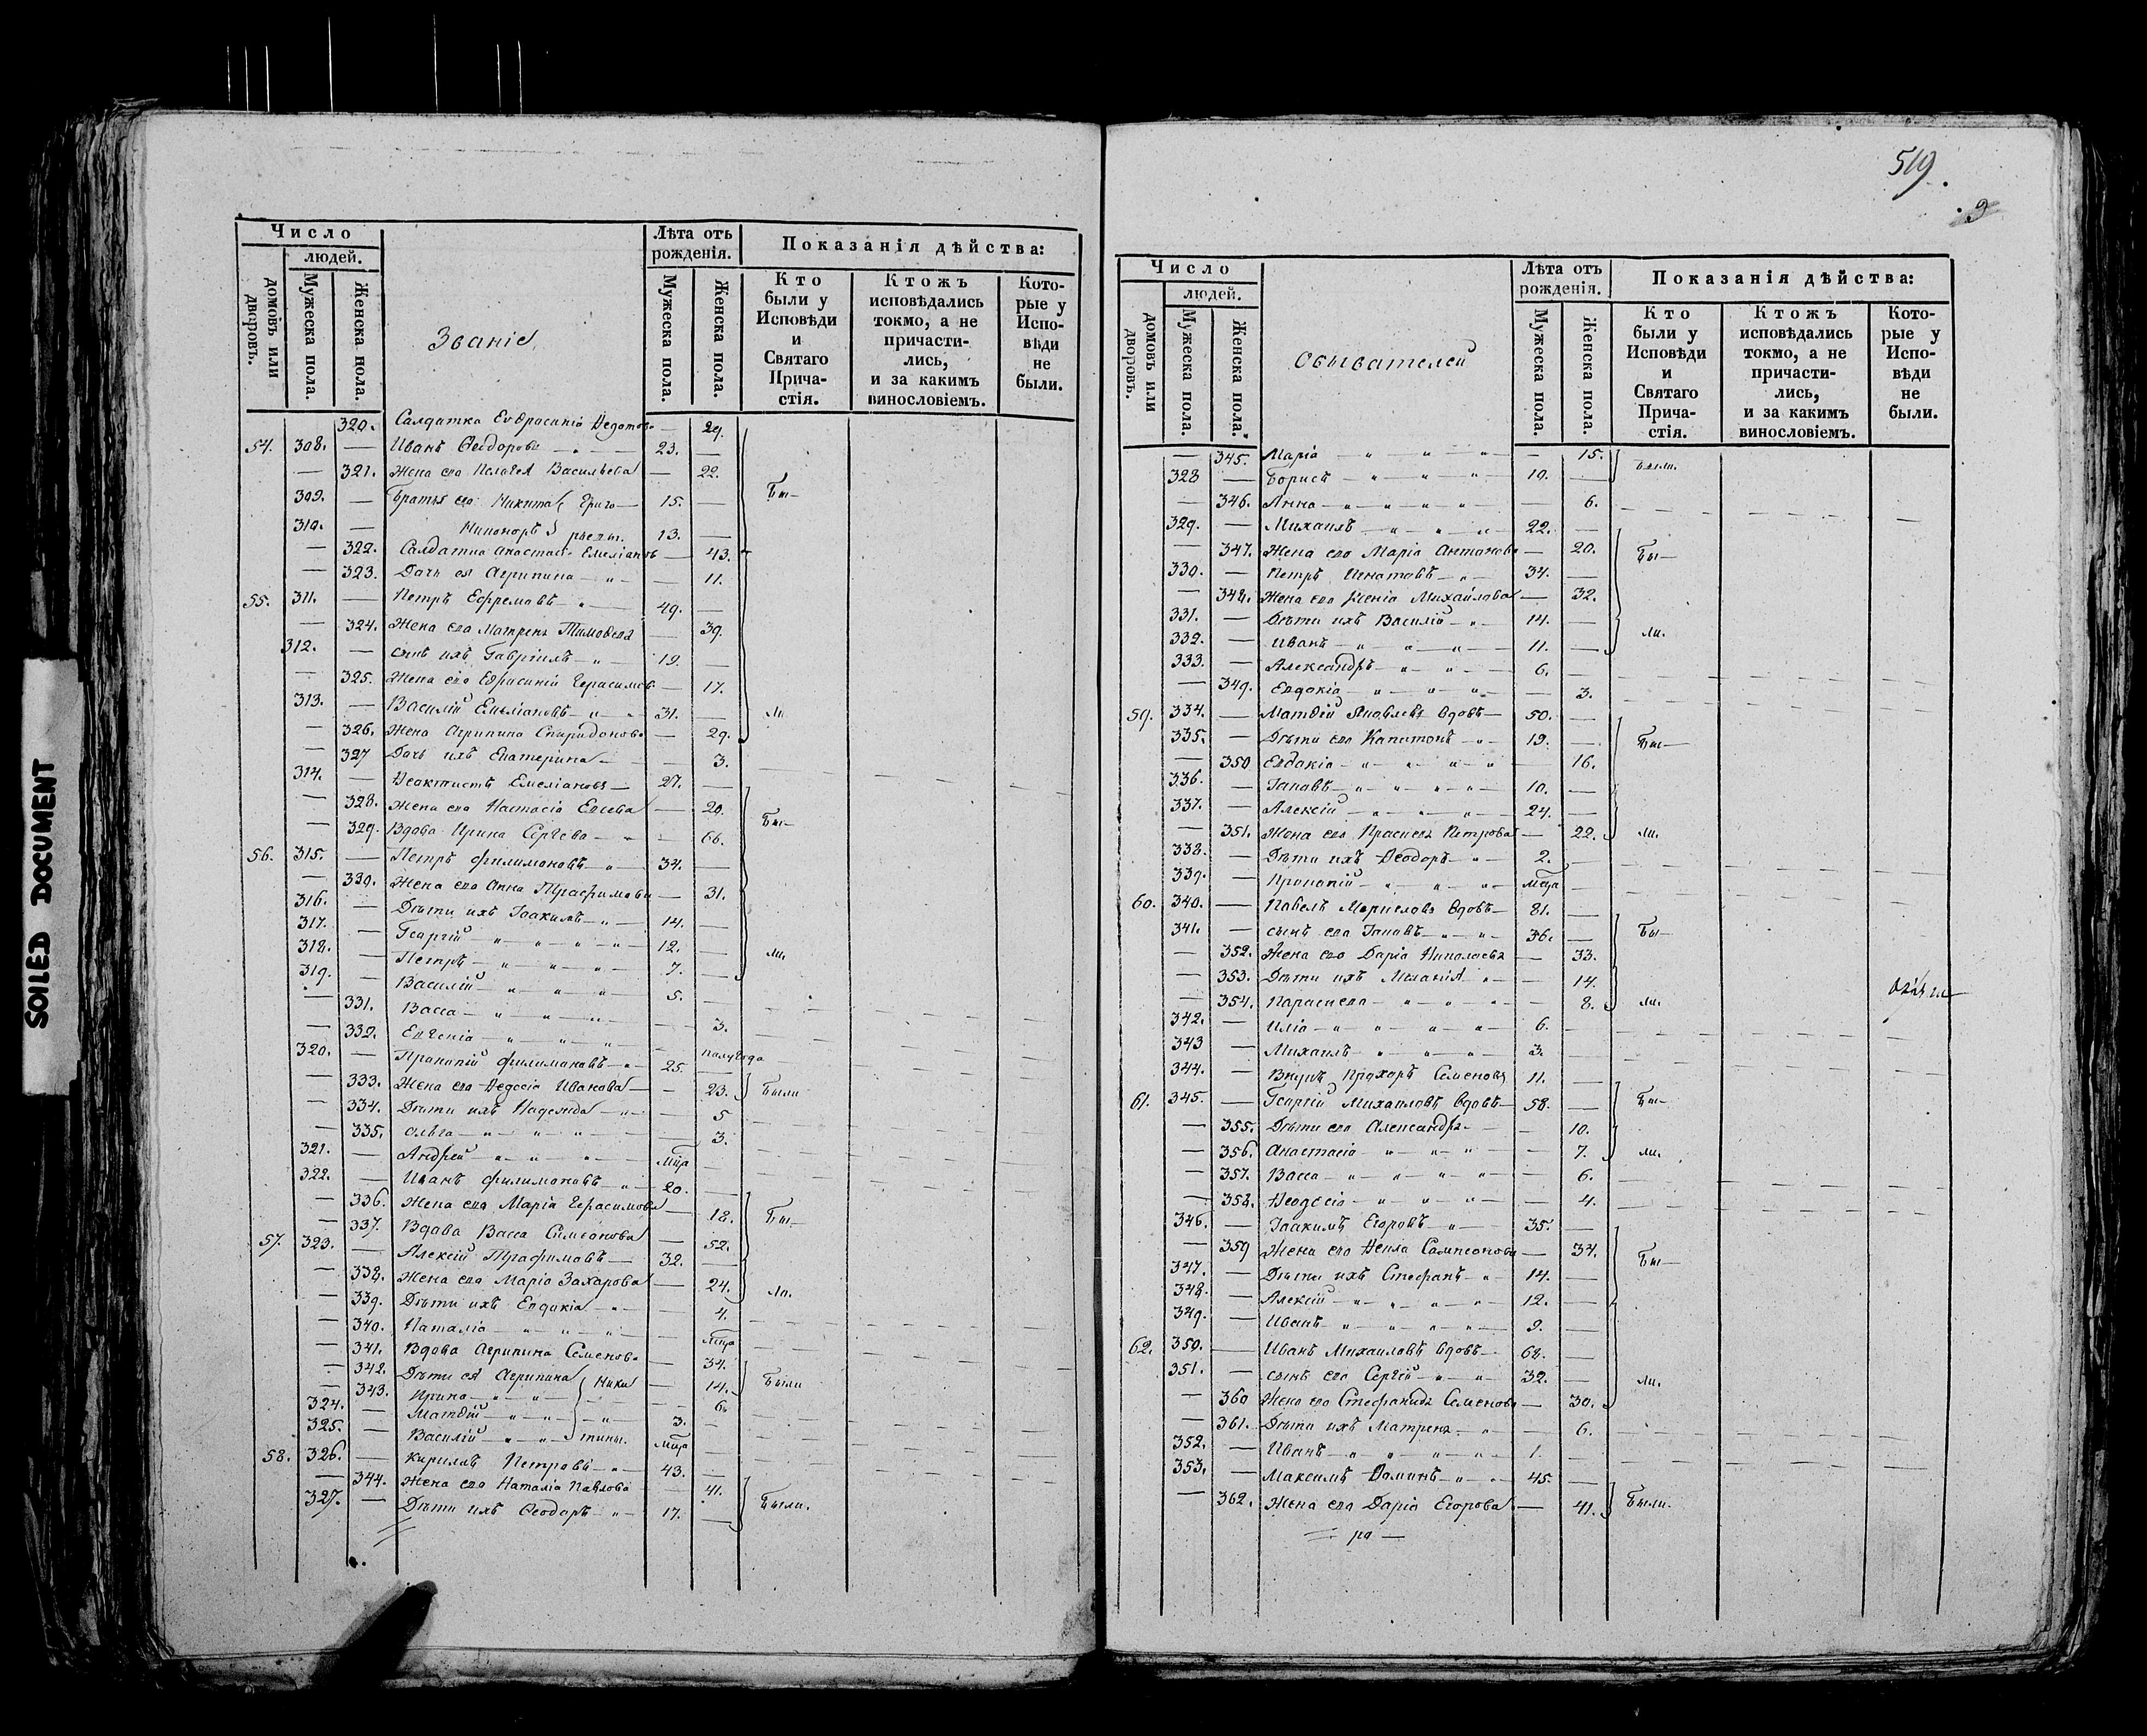 SOILED DOCUMENT
Число
людей.
домовъ или дворовъ.
Мужеска пола.
Женска пола.
Званіе
Лѣта отъ рожденія.
Мужеска пола.
Женска пола.
Показанія дѣйства:
Кто были у Исповѣди и Святаго Прича-стія.
Ктожъ исповѣдались токмо, а не причасти-лись, и за какимъ винословіемъ.
Кото-рые у Испо-вѣди не были.
320. Салдатка Евфрасинія Ѳедотова — 29.
54. 308. — Иванъ Ѳеодоровъ 23. —
— 321. Жена его Пелагея Васильева — 22.
309. — Братья его Никита Григо- 15. — Бы-
310. — Никоноръ рьевы. 13. —
— 322. Салдатка Анастасія Емеліанова — 43.
— 323. Дочь ея Агрипина — " — 11.
55. 311. — Петръ Ефремовъ — " — 49. —
— 324. Жена его Матрена Тимоѳеева — 39.
312. — сынъ ихъ Гавріилъ — " — 19. —
— 325. Жена его Ефрасинія Герасимова — 17.
313. — Василій Емеліановъ — " — 31. — ли
— 326. Жена Агрипина Спиридонова — 29.
— 327 Дочь ихъ Екатерина — 3.
314. — Ѳеоктистъ Емеліановъ — 27. —
— 328. Жена его Настасія — 20. Бы-
— 329. Вдова Ирина Сергѣева — 66.
56. 315. — Петръ Филимоновъ — " 34. —
— 330. Жена его Анна Трафимова — 31.
316. — Дѣти ихъ Іоакимъ — " — 14. —
317. — Георгій — " — " — 12. —
318. — Петръ — " — " — 7. — ли.
319. — Василій — " — " — 5. —
— 331. Васса — " — " — 3.
— 332. Евгенія — " — " — полугода
320. — Пракопій Филимоновъ — 25. —
— 333. Жена его Ѳедосія Иванова — 23. Были
— 334. Дѣти ихъ Надежда — " — 5
— 335. Ольга — " — " — 3.
321. — Андрей — " — " — мца —
322. — Иванъ Филимоновъ — " — 20. —
— 336. Жена его Марія Герасимова — 18. Бы-
— 337. Вдова Васса Симеонова — 52.
57. 323. — Алексій Трафимовъ — 32. —
— 338. Жена его Марія Захарова — 24. ли.
— 339. Дѣти ихъ Евдокія — " — 4.
— 340. Наталія — " — " — мца
— 341. Вдова Агрипина Семенова — 34.
— 342. Дѣти ея Агрипина Ники — 14. Были
— 343. Ирина — " — " — 6.
324. — Матѳій — " — " — 3. —
325. — Василій — " — тины. мца —
58. 326. — Кирилъ Петровъ — " — 43. —
— 344. Жена его Наталіа Павлова — 41.
327. — Дѣти ихъ Ѳеодоръ — " — 17. — Были.
519.
9
Число
людей.
домовъ или дворовъ.
Мужеска пола.
Женска пола.
Обывателей
Лѣта отъ рожденія.
Мужеска пола.
Женска пола.
Показанія дѣйства:
Кто были у Исповѣди и Святаго Прича-стія.
Ктожъ исповѣдались токмо, а не причасти-лись, и за какимъ винословіемъ.
Кото-рые у Испо-вѣди не были.
— 345. Маріа — " — " — 15. Были.
328 — Борисъ — " — " — 10. —
— 346. Анна — " — " — 6.
329. — Михаилъ — " — " — 22. —
— 347. Жена его Маріа Антонова — 20. Бы-
330. — Петръ Игнатовъ — " — 34. —
— 348. Жена его Ксенія Михайлова — 32.
331. — Дѣти ихъ Василій — " — 14. —
332. — Иванъ — " — " — 11. — ли.
333. — Александръ — " — " — 6. —
— 349. Евдокіа — " — " — 3.
59. 334. — Матѳій Яковлевъ вдовъ — 50. —
335. — Дѣти его Капитонъ — " — 19. — Бы-
— 350 Евдокіа — " — " — 16.
336. — Іаковъ — " — " — 10. —
337. — Алексій — " — " — 24. —
— 351. Жена его Прасковья Петрова — 22. ли.
338. — Дѣти ихъ Ѳеодоръ — " — 2. —
339. — Прокопій — " — " — мца —
60. 340. — Павелъ вдовъ — 81. —
341. — сынъ его Іаковъ — " — 36. — Бы-
— 352. Жена его Даріа Николаева — 33.
— 353. Дѣти ихъ Меланія " — 14.
— 354. Параскева — " — " — 8. ли.
342. — Иліа — " — " — 6. —
343 — Михаилъ — " — " — 3. —
344. — Внукъ Прохоръ Семеновъ 11. —
61. 345. — Георгій Михаиловъ вдовъ — 58. — Бы-
— 355. Дѣти его Александра — 10.
— 356. Анастасіа — " — " — 7. ли.
— 357. Васса — " — " — 6.
— 358. Ѳеодосіа — " — " — 4.
346. — Іоакимъ Егоровъ — " — 35. —
— 359 Жена его Ѳекла Сампсонова — 34. Бы-
347. — Дѣти ихъ Стефанъ — " 14. —
348. — Алексій — " — " — 12. —
349. — Иванъ — " — " — 9. —
62. 350. — Иванъ Михаиловъ вдовъ — 68. —
351. — сынъ его Сергій — " — 32. — ли.
— 360 Жена его Стефанида Семенова — 30.
— 361. Дѣти ихъ Матрена " — 6.
352. — Иванъ — " — " — 1. —
353. — Максимъ Ѳоминъ — " — 45. —
— 362. Жена его Даріа Егорова — 41. Были.